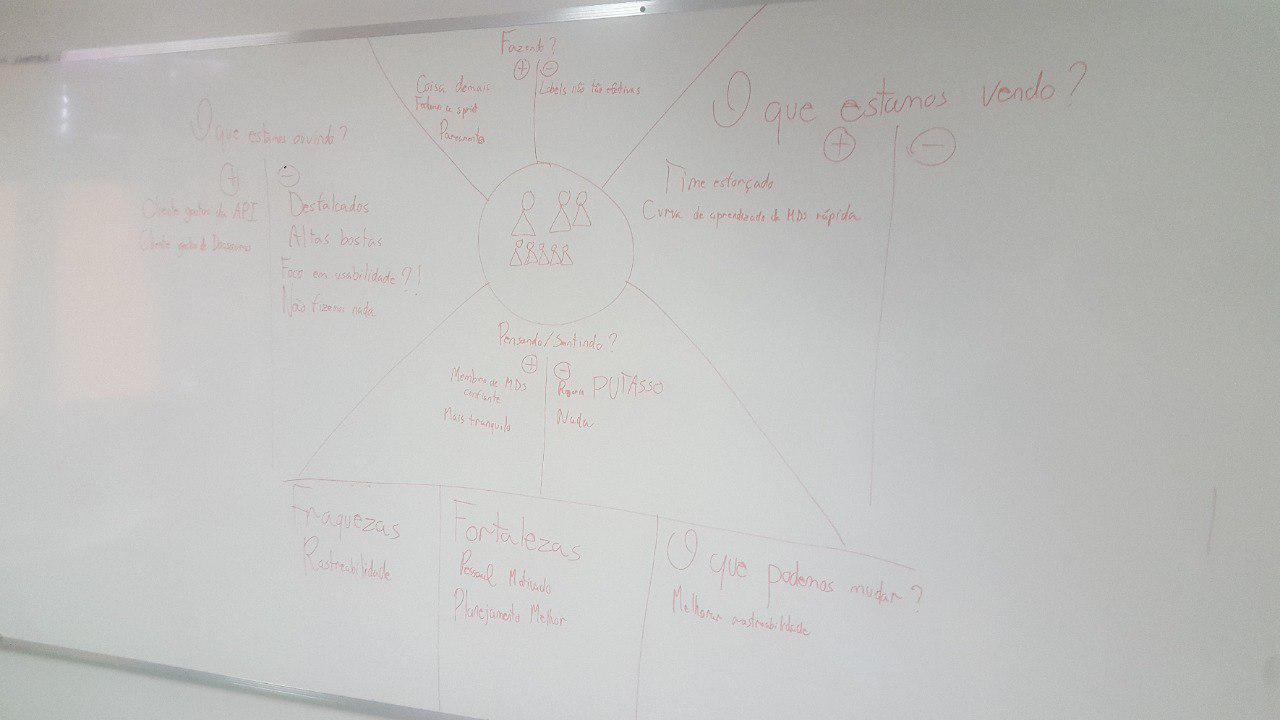 Fazendo?
+ -
Coisa demais
Fechar a sprint
Pareamento
Labels não tão efetivas
O que estamos ouvindo?
+ -
Cliente gostou da API
Cliente gostou de
Desfalcados
Altas bostas
Foco em usabilidade?!
Não fizemos nada
O que estamos vendo?
+ -
Time esforçado
Curva de aprendizado de MDS rápida
Pensando/Sentindo?
+ -
Membro de MDS
confiante
Mais tranquilo
PUTASSO
Nada
Fraquezas
Rastreabilidade
Fortalezas
Pessoal Motivado
Planejamento Melhor
O que podemos mudar?
Melhorar rastreabilidade